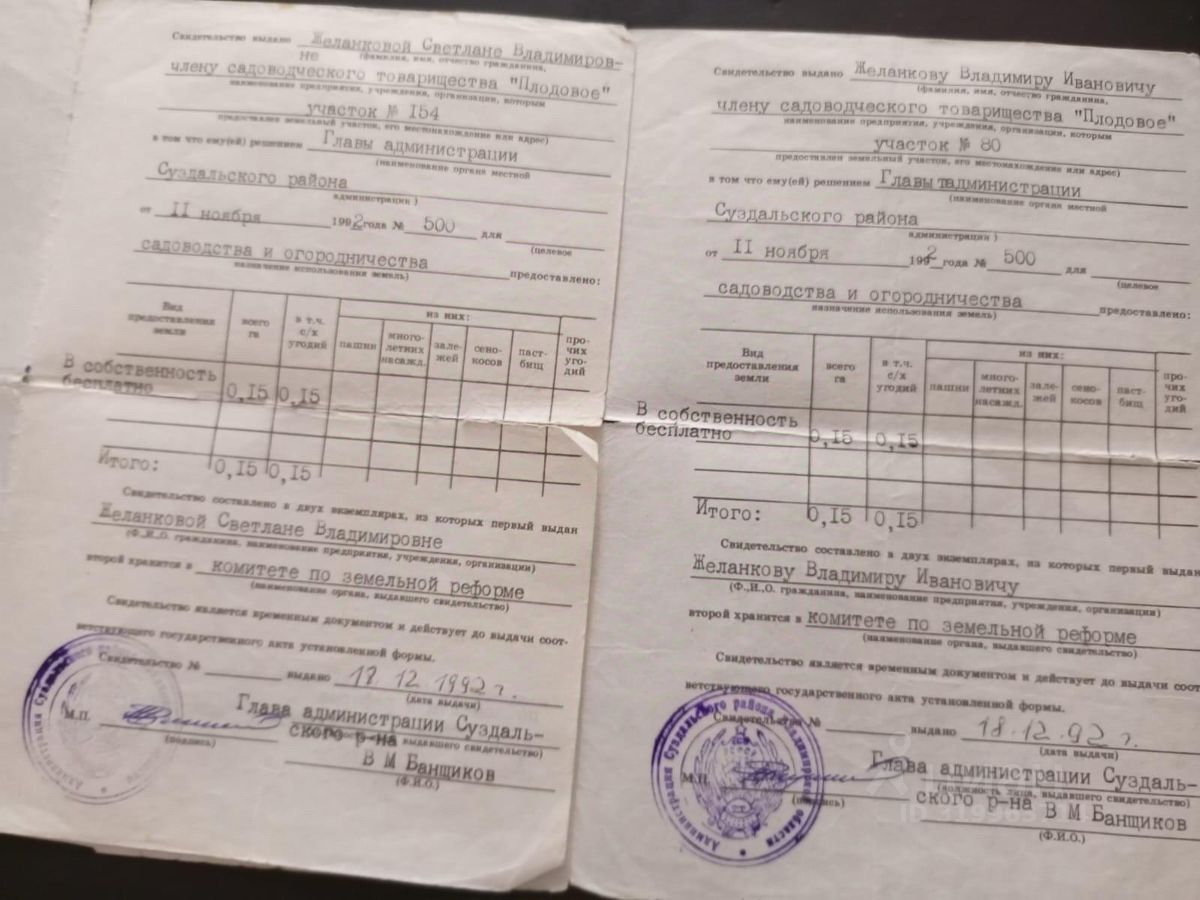 Свидетельство выдано Желанковой Светлане Владимиров-
не
(фамилия, имя, отчество гражданина,
члену садоводческого товарищества "Плодовое"
наименование предприятия, учреждения, организации, которым
участок № I54
предоставлен земельный участок, его местонахождение или адрес)
в том что ему(ей) решением Главы администрации
(наименование органа местной
Суздальского района
администрации)
от II ноября 1992 года № 500 для
(целевое
садоводства и огородничества предоставлено:
назначение использования земель)
Вид предоставления земли
всего га
в т.ч. с/х угодий
из них:
пашни
много-летних насажд.
зале-жей
сено-косов
паст-бищ
про-чих уго-дий
В собственность
бесплатно 0,I5 0,I5
Итого: 0,I5 0,I5
Свидетельство составлено в двух экземплярах, из которых первый выдан
Желанковой Светлане Владимировне
(Ф.,И.,О. гражданина, наименование предприятия, учреждения, организации)
второй хранится в комитете по земельной реформе
(наименование органа, выдавшего свидетельство)
Свидетельство является временным документом и действует до выдачи соот-
ветствующего государственного акта установленной формы.
Свидетельство № выдано 18.12.1992 г.
(дата выдачи)
Глава администрации Суздаль-
М.П.
(подпись)
ского р-на выдавшего свидетельство)
В М Банщиков
(Ф.И.О.)
Администрация Суздальского района
Свидетельство выдано Желанкову Владимиру Ивановичу
(фамилия, имя, отчество гражданина,
члену садоводческого товарищества "Плодовое"
наименование предприятия, учреждения, организации, которым
участок № 80
предоставлен земельный участок, его местонахождение или адрес)
в том что ему(ей) решением Главы администрации
(наименование органа местной
Суздальского района
администрации)
от II ноября 1992 года № 500 для
(целевое
садоводства и огородничества предоставлено:
назначение использования земель)
Вид предоставления земли
всего га
в т.ч. с/х угодий
из них:
пашни
много-летних насажд.
зале-жей
сено-косов
паст-бищ
про-чих уго-дий
В собственность
бесплатно 0,I5 0,I5
Итого: 0,I5 0,I5
Свидетельство составлено в двух экземплярах, из которых первый выдан
Желанкову Владимиру Ивановичу
(Ф.,И.,О. гражданина, наименование предприятия, учреждения, организации)
второй хранится в комитете по земельной реформе
(наименование органа, выдавшего свидетельство)
Свидетельство является временным документом и действует до выдачи соот-
ветствующего государственного акта установленной формы.
Свидетельство № выдано 18.12.92 г.
(дата выдачи)
Глава администрации Суздаль-
М.П.
(подпись)
(должность лица, выдавшего свидетельство)
ского р-на В М Банщиков
(Ф.И.О.)
Администрация Суздальского района Владимирской области